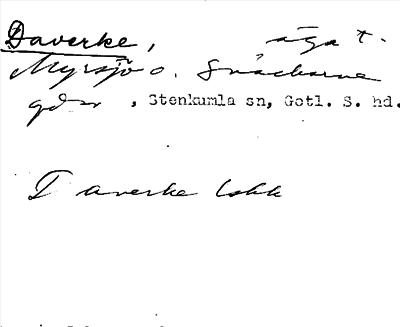 Daverke, äga t.
Myrsjö o. Snäckarve
gdr, Stenkumla sn, Gotl. S. hd.
T averke